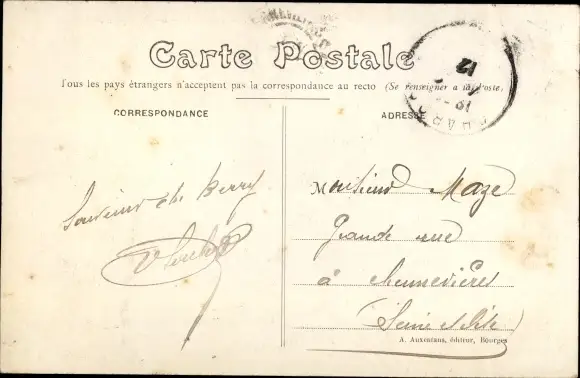 Carte Postale
Tous les pays étrangers n'acceptent pas la correspondance au recto (Se renseigner à la Poste)
CORRESPONDANCE
ADRESSE
Souvenir du Berry
Monsieur Maze
Grande rue
à chennevières
(Seine et Oise)
A. Auxenfans, éditeur, Bourges